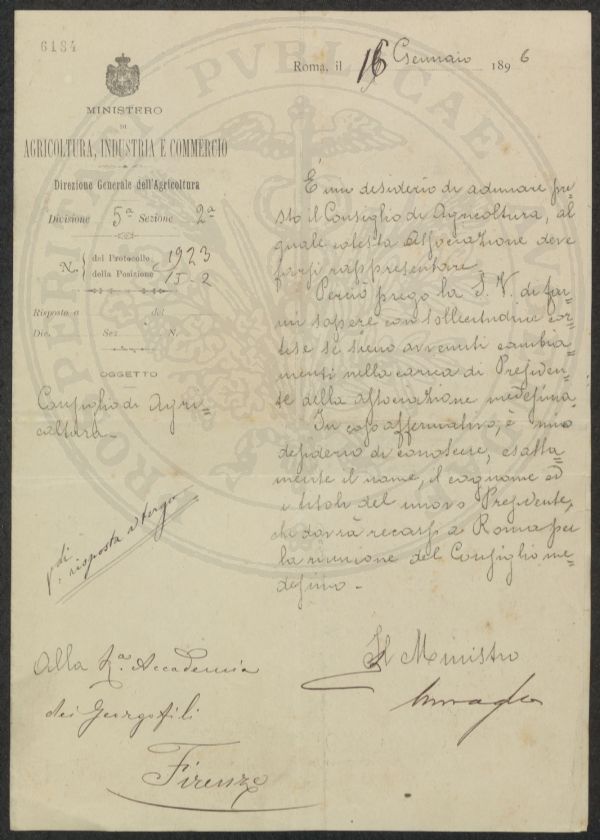 6184
MINISTERO
DI
AGRICOLTURA, INDUSTRIA E COMMERCIO
Direzione Generale dell'Agricoltura
Divisione 5ª Sezione 2ª
N. del Protocollo 1923
della Posizione 15-2
Risposta a del
Div. Sez. N.
OGGETTO
Consiglio di Agri=
coltura.
Vdi. risposta a tergo
Alla Rª. Accademia
dei Georgofili
Firenze
Roma, il 16 Gennaio 1896
È mio desiderio di adunare pre=
sto il Consiglio di Agricoltura, al
quale cotesta Associazione deve
farsi rappresentare.
Perciò prego la S. V. di far=
mi sapere con sollecitudine cor=
tese se sieno avvenuti cambia=
menti nella carica di Presiden=
te della associazione medesima.
In caso affermativo, è mio
desiderio di conoscere, esatta=
mente il nome, il cognome ed
i titoli del nuovo Presidente,
che dovrà recarsi a Roma per
la riunione del Consiglio me=
desimo.
Il Ministro
PROSPERITATI PVBLICAE AVGENDAE